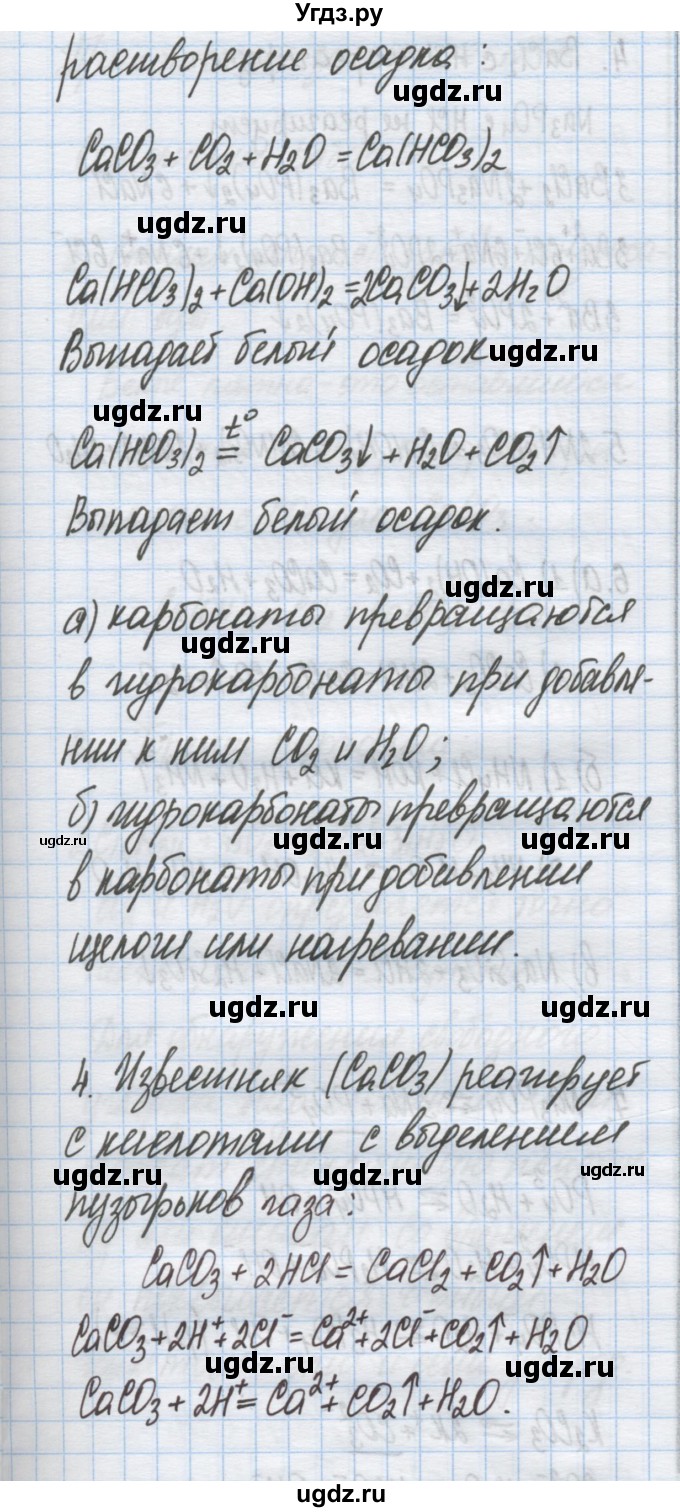 Угдз.ру
растворение осадка:
ugdz.ru
CaCO3 + CO2 + H2O = Ca(HCO3)2
ugdz.ru
Ca(HCO3)2 + Ca(OH)2 = 2CaCO3↓ + 2H2O
Выпадает белый осадок
ugdz.ru
ugdz.ru
Ca(HCO3)2 =t° CaCO3↓ + H2O + CO2↑
Выпадает белый осадок.
ugdz.ru
а) карбонаты превращаются
ugdz.ru
в гидрокарбонаты при добавле-
нии к ним CO2 и H2O;
б) гидрокарбонаты превращаются
ugdz.ru ugdz.ru ugdz.ru
в карбонаты при добавлении
щелочи или нагревании.
ugdz.ru ugdz.ru
4. Известняк (CaCO3) реагирует
с кислотами с выделением
ugdz.ru ugdz.ru ugdz.ru
пузырьков газа:
CaCO3 + 2HCl = CaCl2 + CO2↑ + H2O
CaCO3 + 2H⁺ + 2Cl⁻ = Ca²⁺ + 2Cl⁻ + CO2↑ + H2O
ugdz.ru ugdz.ru
CaCO3 + 2H⁺ = Ca²⁺ + CO2↑ + H2O.
ugdz.ru